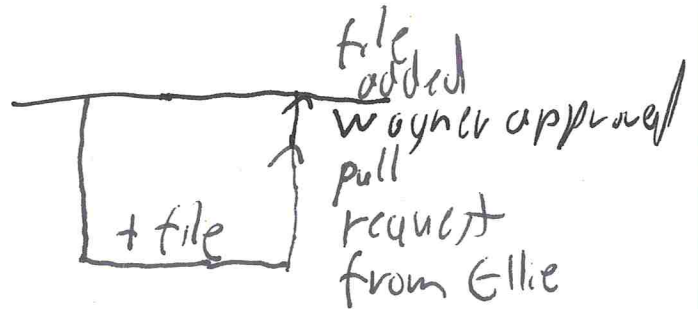 file
added
Wayner approved
pull
request
from Ellie
+ file